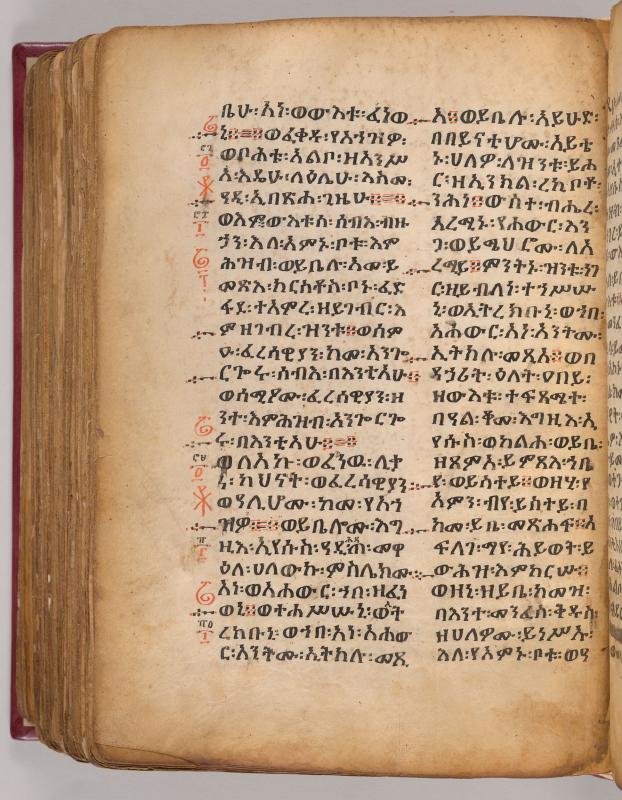 ቤሁ፡አነ፡ወውእቱ፡ፈነወ
ኒ፨=፨ወፈቀዱ፡የአኀዝዎ፡
ወቦሕቱ፡አልቦ፡ዘአንሥ
አ፡እዴሁ፡ላዕሌሁ፡እስመ፡
ዓዲ፡ኢበጽሐ፡ጊዜሁ፨=፨
ወእምውእቱስ፡ሰብእ፡ብዙ
ኃን፡እለ፡አምኑ፡ቦቱ፡እም
ሕዝብ፡ወይቤሉ፡እመ፡ይ
መጽእ፡ክርስቶስ፡ቦኑ፡ፈድ
ፋደ፡ተአምረ፡ዘይገብር፡እ
ምዘገብረ፡ዝንቱ፨ወሰም
ዑ፡ፈሪሳዊያን፡ከመ፡አንጐ
ርጐሩ፡ሰብእ፡በእንቲአሁ፨
ወሰሚዖሙ፡ፈሪሳዊያን፡ዘ
ንተ፡እምሕዝብ፡አንጐርጐ
ሩ፡በእንቲአሁ፨=፨
ወለአኩ፡ወፈነዉ፡ሊቃ
ነ፡ካህናት፡ወፈሪሳዊያን፡
ወዓሊሆሙ፡ከመ፡የአኀ
ዝዎ፨=፨ወይቤሎሙ፡እግ
ዚእ፡ኢየሱስ፡ዓዲ፡ሕዳጠ፡መዋ
ዕለ፡ሀለውኩ፡ምስሌክሙ፡
አነ፡ወአሐውር፡ኀበ፡ዘፈነ
ወኒ፨ወተሐሥሡኒ፡ወኢት
ረክቡኒ፡ወኀበ፡አነ፡አሐው
ር፡አንትሙ፡ኢትክሉ፡መጺ
አ፨ወይቤሉ፡አይሁድ፡
በበይናቲሆሙ፡አይቴ
ኑ፡ሀለዎ፡ለዝንቱ፡ይሐ
ር፡ዘኢንክል፡ረኪቦቶ፡
ንሕነ፨ውስተ፡ብሔረ፡
አረሚኑ፡የሐውር፡እን
ጋ፡ወይሜህሮሙ፡ለአ
ረሚ፨ምንትኑ፡ዝንቱ፡ነገ
ር፡ዘይብለነ፡ተኀሥሡ
ኒ፡ወኢትረክቡኒ፡ወኀበ፡
አሐውር፡አነ፡አንትሙ፡
ኢትክሉ፡መጺአ፨ወበ
ዳኃሪት፡ዕለት፡ዐባይ፡
ዘውእቱ፡ተፍጻሜት፡
በዓል፡ቆመ፡እግዚእ፡ኢ
የሱስ፡ወከልሐ፡ወይቤ፡
ዘጸምአ፡ይምጻእ፡ኀቤ
የ፡ወይስተይ፨ወዘሂ፡የ
አምን፡ብየ፡ይስተይ፡በ
ከመ፡ይቤ፡መጽሐፍ፨አ
ፍላገ፡ማየ፡ሕይወት፡ይ
ውሕዝ፡እምከርሡ፨
ወዘኒ፡ዘይቤ፡ከመዝ፡
በእንተ፡መንፈስ፡ቅዱስ፡
ዘሀለዎሙ፡ይነሥኡ፡
እለ፡የአምኑ፡ቦቱ፡ወዓ